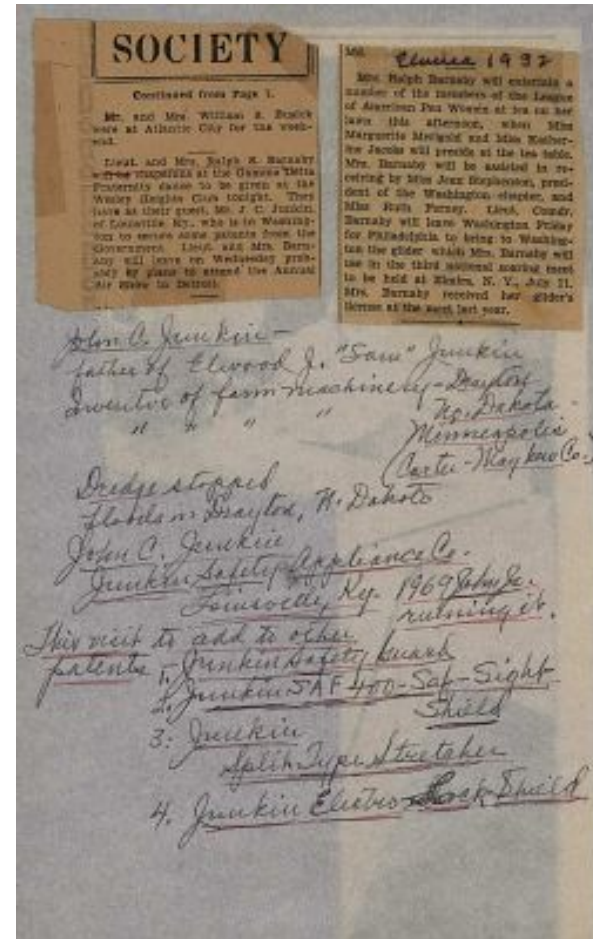 SOCIETY
Continued from Page 1.
Mr. and Mrs. William S. Busick
were at Atlantic City for the week-
end.
Lieut. and Mrs. Ralph S. Barnaby
will be chaperons at the Gamma Delta
Fraternity dance to be given at the
Wesley Heights Club tonight. They
have as their guest, Mr. J. C. Junkin,
of Louisville, Ky., who is in Washing-
ton to secure some patents from the
Government. Lieut. and Mrs. Barn-
aby will leave on Wednesday prob-
ably by plane to attend the Annual
Air Show in Detroit.
Md.
Elmira 1932
Mrs. Ralph Barnaby will entertain a
number of the members of the League
of American Pen Women at tea on her
lawn this afternoon, when Miss
Marguerite and Miss Kather-
ine Jacobs will preside at the tea table.
Mrs. Barnaby will be assisted in re-
ceiving by Miss Jean Stephenson, presi-
dent of the Washington chapter, and
Miss Ruth Farney. Lieut. Comdr.
Barnaby will leave Washington Friday
for Philadelphia to bring to Washing-
ton the glider which Mrs. Barnaby will
use in the third national soaring meet
to be held at Elmira, N. Y., July 11.
Mrs. Barnaby received her glider's
license at the meet last year.
John C. Junkin -
father of Elwood J. "Sam" Junkin
Inventor of farm machinery - Drayton
" " " " No. Dakota -
Minneapolis
(Carter - Mayhew Co.)
Dredge stopped
floods in Drayton, N. Dakota
John C. Junkin
Junkin Safety Appliance Co.
Louisville, Ky. 1969 John Jr.
running it.
This visit to add to other
patents 1. Junkin Safety Guard
2. Junkin SAF 400-Saf-Sight
Shield
3: Junkin
Split Type Stretcher
4. Junkin Electro-Lock-Shield